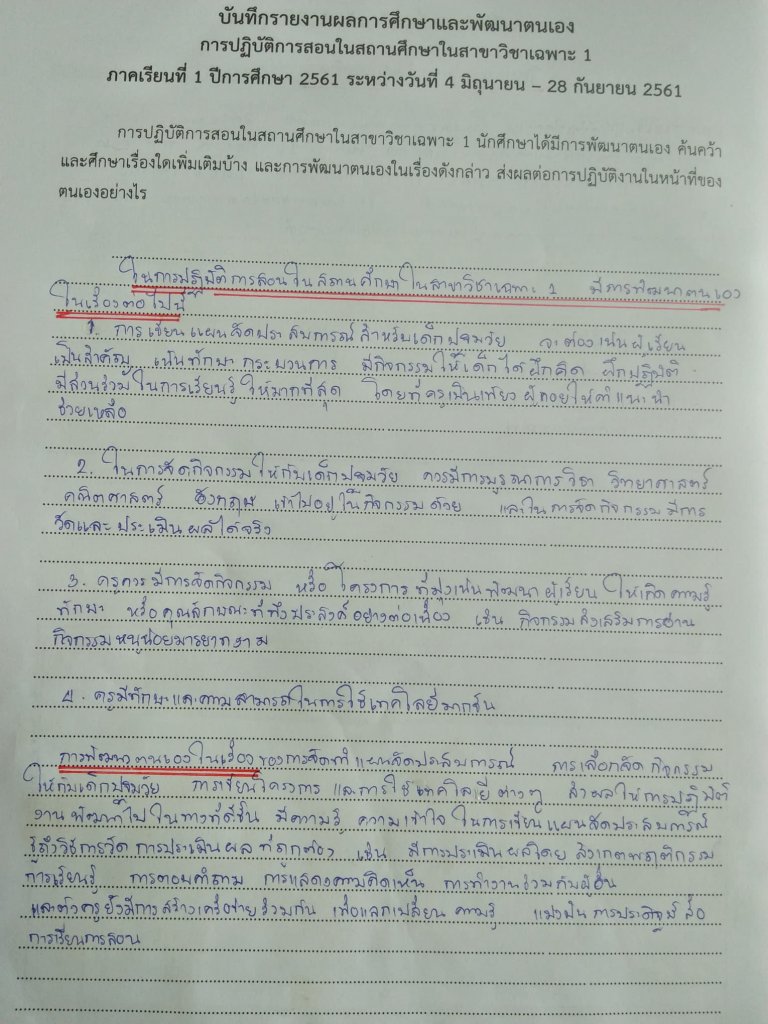 บันทึกรายงานผลการศึกษาและพัฒนาตนเอง
การปฏิบัติการสอนในสถานศึกษาในสาขาวิชาเฉพาะ 1
ภาคเรียนที่ 1 ปีการศึกษา 2561 ระหว่างวันที่ 4 มิถุนายน – 28 กันยายน 2561
การปฏิบัติการสอนในสถานศึกษาในสาขาวิชาเฉพาะ 1 นักศึกษาได้มีการพัฒนาตนเอง ค้นคว้า
และศึกษาเรื่องใดเพิ่มเติมบ้าง และการพัฒนาตนเองในเรื่องดังกล่าว ส่งผลต่อการปฏิบัติงานในหน้าที่ของ
ตนเองอย่างไร
ในการปฏิบัติการสอนในสถานศึกษาในสาขาวิชาเฉพาะ 1 มีการพัฒนาตนเอง
ในเรื่องต่อไปนี้
1. การเขียนแผนจัดประสบการณ์สำหรับเด็กปฐมวัย จะต้องเน้นผู้เรียน
เป็นสำคัญ เน้นทักษะกระบวนการ มีกิจกรรมให้เด็กได้ฝึกคิด ฝึกปฏิบัติ
มีส่วนร่วมในการเรียนรู้ให้มากที่สุด โดยที่ครูเป็นเพียงผู้คอยให้คำแนะนำ
ช่วยเหลือ
2. ในการจัดกิจกรรมให้กับเด็กปฐมวัย ควรมีการบูรณาการวิชา วิทยาศาสตร์
คณิตศาสตร์ อังกฤษ เข้าไปอยู่ในกิจกรรมด้วย และในการจัดกิจกรรมมีการ
วัดและประเมินผลได้จริง
3. ครูควรมีการจัดกิจกรรม หรือโครงการที่มุ่งเน้นพัฒนาผู้เรียนให้เกิดความรู้
ทักษะ หรือคุณลักษณะที่พึงประสงค์อย่างต่อเนื่อง เช่น กิจกรรมส่งเสริมการอ่าน
กิจกรรมหนูน้อยมารยาทงาม
4. ครูมีทักษะและความสามารถในการใช้เทคโนโลยีมากขึ้น
การพัฒนาตนเองในเรื่องของการจัดทำแผนจัดประสบการณ์ การเลือกจัดกิจกรรม
ให้กับเด็กปฐมวัย การเขียนโครงการ และการใช้เทคโนโลยีต่างๆ ส่งผลให้การปฏิบัติ
งานพัฒนาไปในทางที่ดีขึ้น มีความรู้ ความเข้าใจในการเขียนแผนจัดประสบการณ์
รู้ถึงวิธีการวัดการประเมินผลที่ถูกต้อง เช่น มีการประเมินผลโดยสังเกตพฤติกรรม
การเรียนรู้ การตอบคำถาม การแสดงความคิดเห็น การทำงานร่วมกับผู้อื่น
และตัวครูยังมีการสร้างเครือข่ายร่วมกัน เพื่อแลกเปลี่ยนความรู้ แบ่งปันการประดิษฐ์สื่อ
การเรียนการสอน